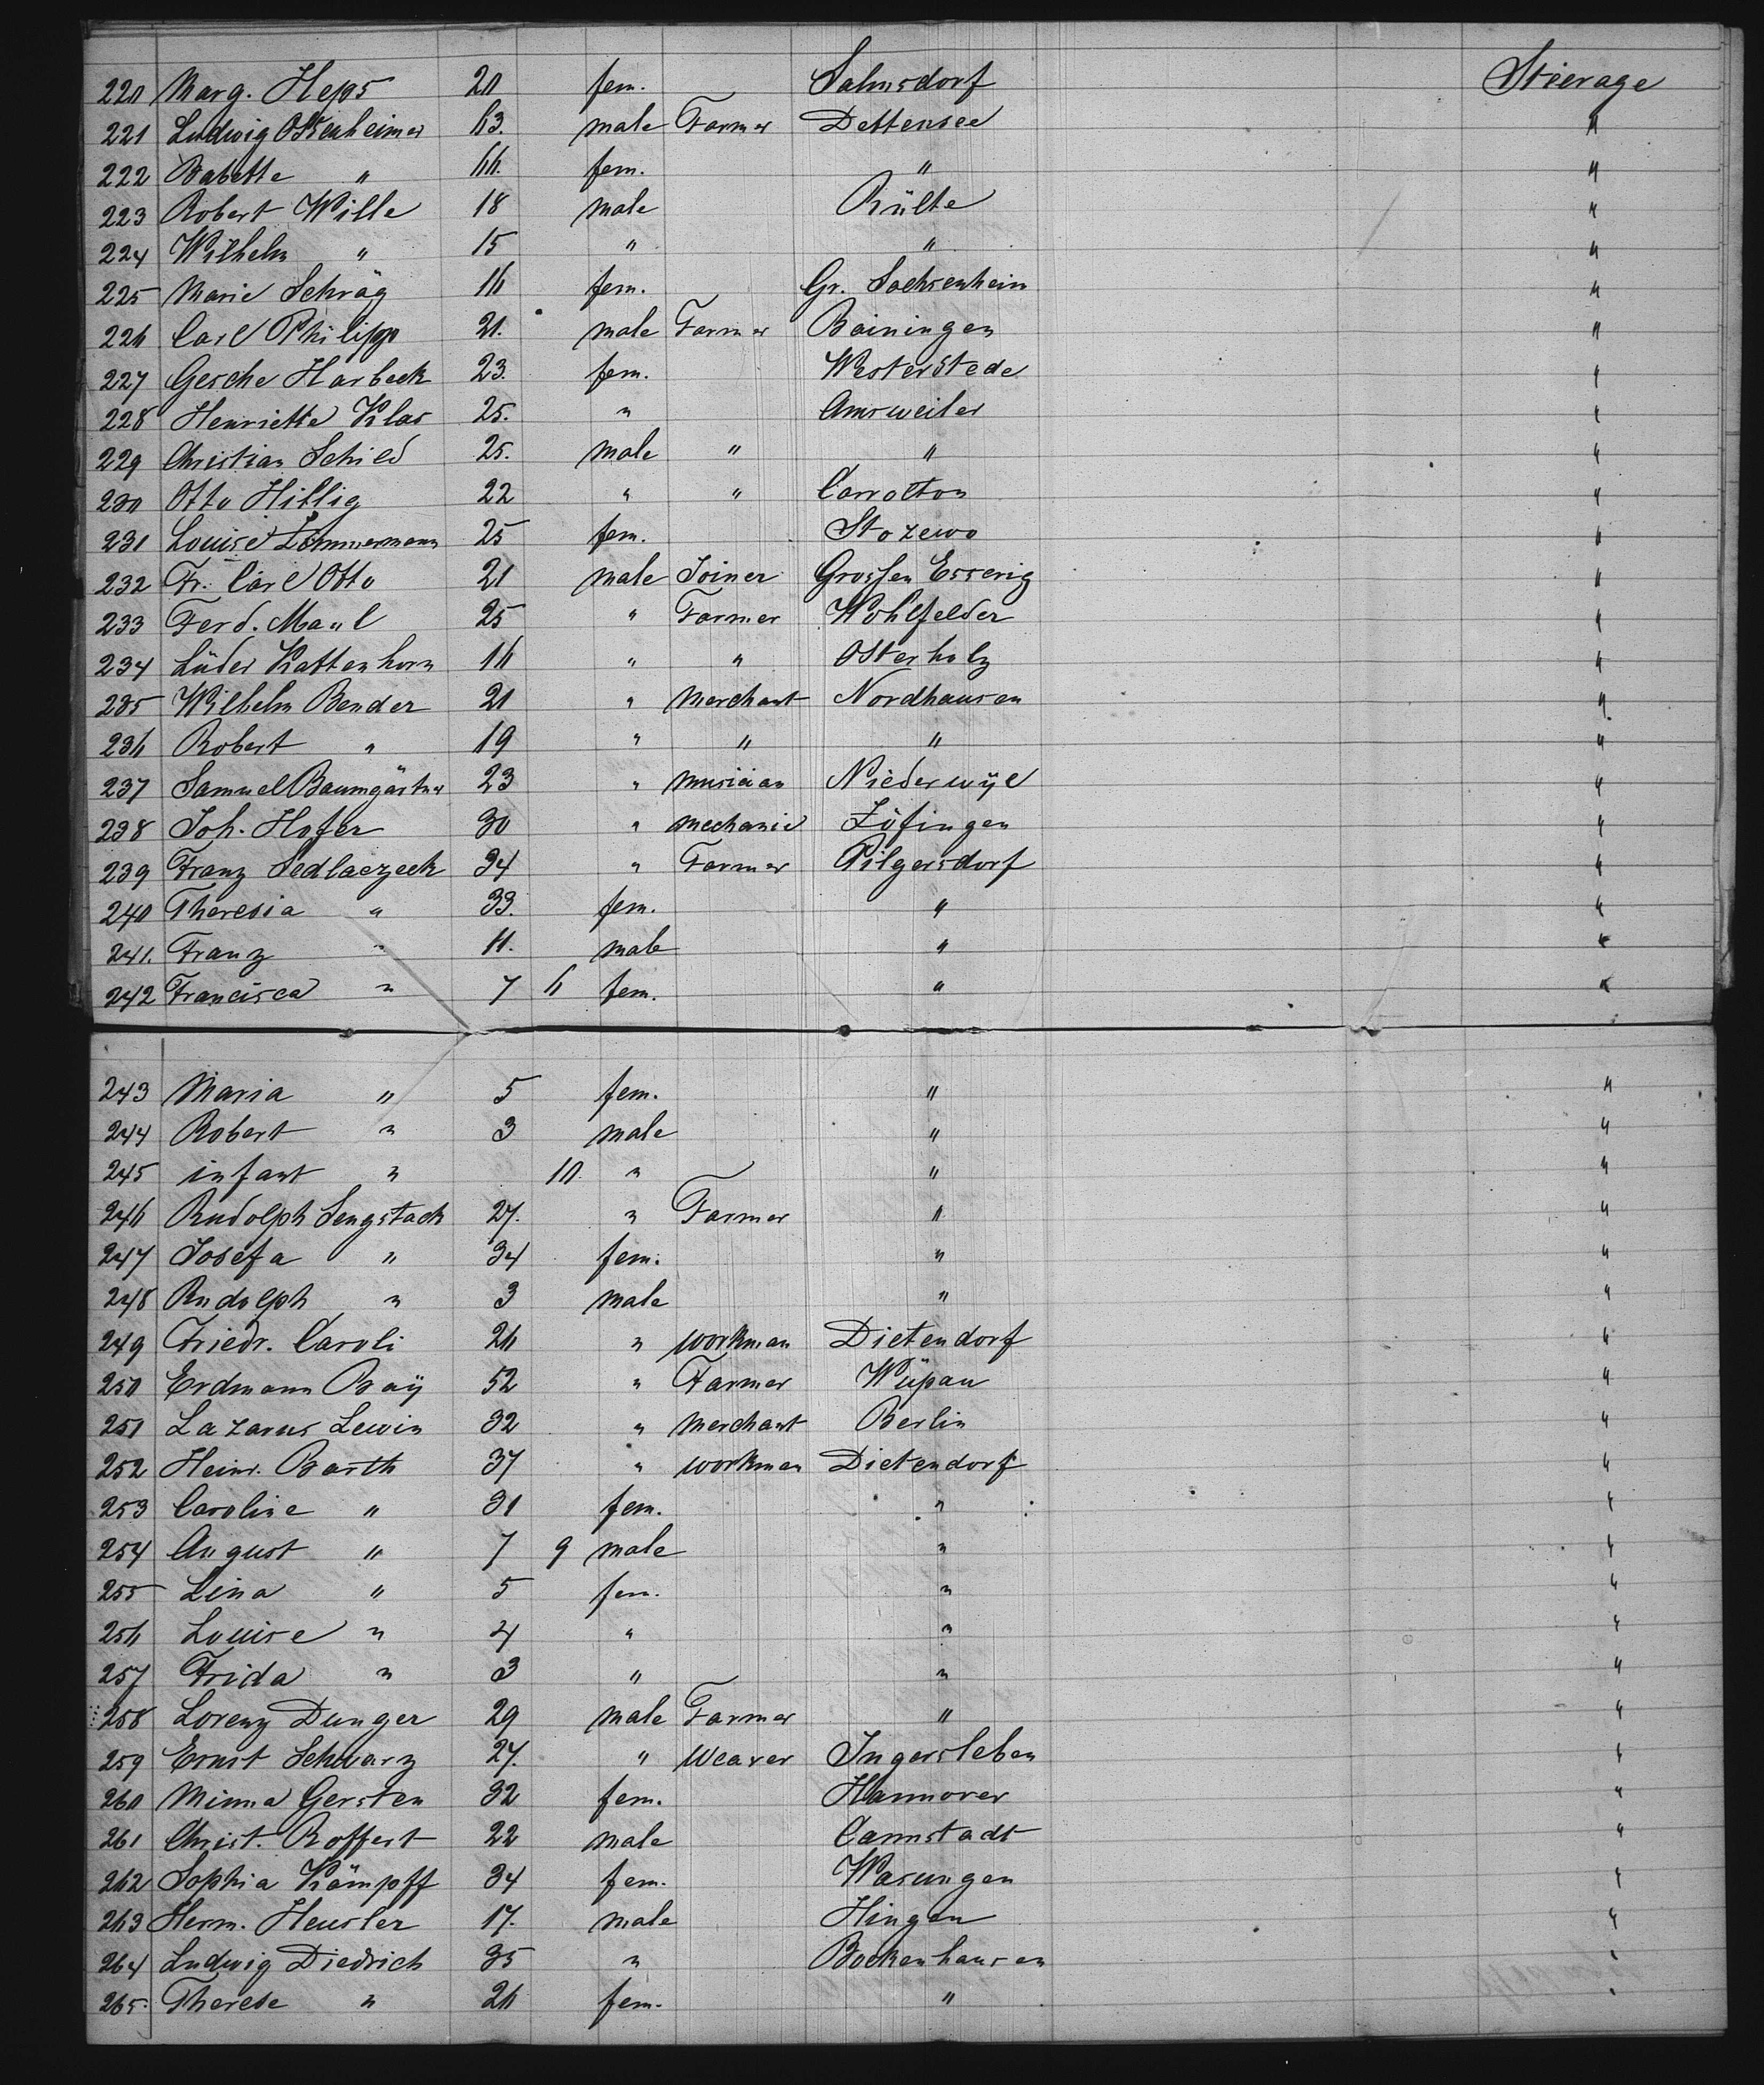 220 Marg. Heps 20 fem. Salmsdorf Stierage
221 Ludwig Ottenheimer 63. male Farmer Dettensee "
222 Babette " 66. fem. " "
223 Robert Wille 18 male Rülte "
224 Wilhelm " 15 " " "
225 Marie Schräg 16 fem. Gr. Sachsenheim "
226 Carl Philipp 21. male Farmer Boiningen "
227 Gesche Harbeck 23. fem. Westerstede "
228 Henriette Klas 25. " Amsweiler "
229 Christian Schied 25. male " " "
230 Otto Hillig 22 " " Carrolton "
231 Louise Zimmermann 25 fem. Stozewo "
232 Fr. Carl Otto 21 male Joiner Grossen Esserig "
233 Ferd. Maul 25 " Farmer Wohlfelder "
234 Lüder Kattenhorn 16 " " Osterholz "
235 Wilhelm Bender 21 " Merchant Nordhausen "
236 Robert " 19 " " " "
237 Samuel Baumgärtner 23 " musician Niederwÿl "
238 Joh. Hofer 30 " mechanic Zöfingen "
239 Franz Sedlaczeck 34 " Farmer Pilgersdorf "
240 Theresia " 33. fem. " "
241. Franz " 11. male " "
242 Francisca " 7 6 fem. " "
243 Maria " 5 fem. " "
244 Robert " 3 male " "
245 infant " 10. " " "
246 Rudolph Sengstack 27. " Farmer " "
247 Josefa " 34 fem. " "
248 Rudolph " 3 male " "
249 Friedr. Caroli 26 " workman Dietendorf "
250 Erdmann Baÿ 52 " Farmer Wüpau "
251 Lazarus Lewin 32 " Merchant Berlin "
252 Heinr. Barth 37 " workman Dietendorf "
253 Caroline " 31 fem. " "
254 August " 7 9 male " "
255 Lina " 5 fem. " "
256 Louise " 4 " " "
257 Frida " 3 " " "
258 Lorenz Dunger 29 male Farmer " "
259 Ernst Schwarz 27. " Weaver Ingersleben "
260 Minna Gersten 32 fem. Hannover "
261 Christ. Roffert 22 male Cannstadt "
262 Sophia Kämpff 34 fem. Wasungen "
263 Herm. Heusler 17. male Hingen "
264 Ludwig Diedrich 35 " Bockenhausen "
265. Therese " 26 fem. " "